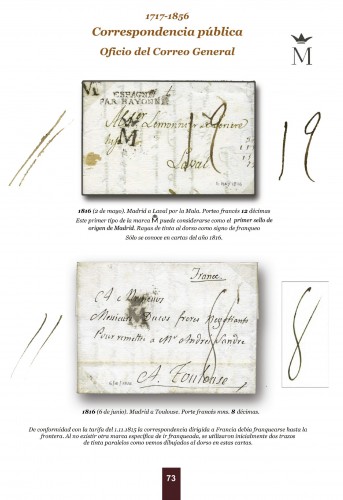 1717-1856
Correspondencia pública
Oficio del Correo General
M
ESPAGNE
PAR BAYONNE
M
19
Laval
19
1816 (2 de mayo). Madrid a Laval por la Mala. Porteo francés 12 décimas
Este primer tipo de la marca M puede considerarse como el primer sello de
origen de Madrid. Rayas de tinta al dorso como signo de franqueo
Sólo se conoce en cartas del año 1816.
France
A Messieurs
Messieurs Ducos freres Negotiants
Pour remettre a Mr Andre
A. Toulouse
8
8
1816 (6 de junio). Madrid a Toulouse. Porte francés rons. 8 décimas.
De conformidad con la tarifa del 1.11.1815 la correspondencia dirigida a Francia debía franquearse hasta la
frontera. Al no existir otra marca específica de ir franqueada, se utilizaron inicialmente dos trazos
de tinta paralelos como vemos dibujados al dorso en estas cartas.
73